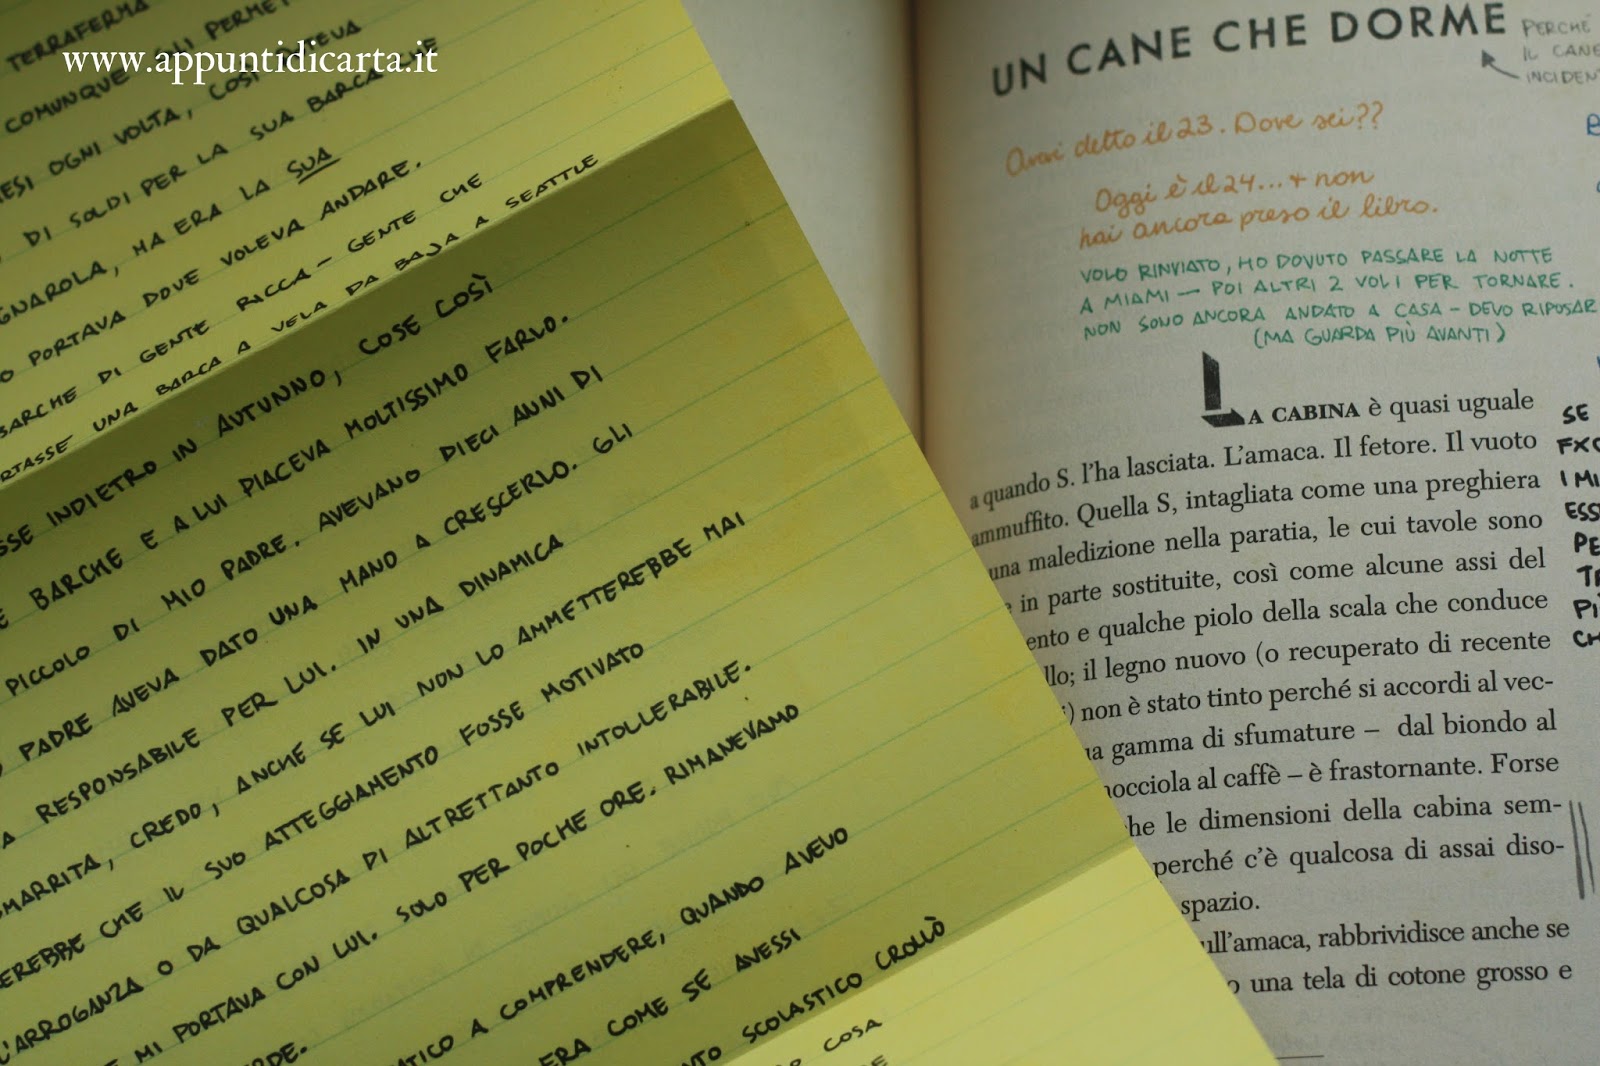 www.appuntidicarta.it
TERRAFERMA
COMUNQUE GLI
OGNI VOLTA, COSÌ AVEVA
DI SOLDI PER LA SUA BARCA CHE
MA ERA LA SUA
PORTAVA DOVE VOLEVA ANDARE.
BARCHE DI GENTE RICCA – GENTE CHE
UNA BARCA A VELA DA BAJA A SEATTLE
INDIETRO IN AUTUNNO, COSE COSÌ
BARCHE E A LUI PIACEVA MOLTISSIMO FARLO.
PICCOLO DI MIO PADRE. AVEVANO DIECI ANNI DI
PADRE AVEVA DATO UNA MANO A CRESCERLO. GLI
RESPONSABILE PER LUI. IN UNA DINAMICA
CREDO, ANCHE SE LUI NON LO AMMETTEREBBE MAI
CHE IL SUO ATTEGGIAMENTO FOSSE MOTIVATO
L'ARROGANZA O DA QUALCOSA DI ALTRETTANTO INTOLLERABILE.
MI PORTAVA CON LUI. SOLO PER POCHE ORE. RIMANEVAMO
A COMPRENDERE, QUANDO AVEVO
ERA COME SE AVESSI
SCOLASTICO CROLLÒ
COSA
UN CANE CHE DORME
PERCHÉ
IL CANE
Avevi detto il 23. Dove sei??
Oggi è il 24... + non
hai ancora preso il libro.
VOLO RINVIATO, HO DOVUTO PASSARE LA NOTTE
A MIAMI — POI ALTRI 2 VOLI PER TORNARE.
NON SONO ANCORA ANDATO A CASA – DEVO RIPOSAR
(MA GUARDA PIÙ AVANTI)
LA CABINA è quasi uguale
a quando S. l'ha lasciata. L'amaca. Il fetore. Il vuoto
ammuffito. Quella S, intagliata come una preghiera
una maledizione nella paratia, le cui tavole sono
in parte sostituite, così come alcune assi del
ento e qualche piolo della scala che conduce
llo; il legno nuovo (o recuperato di recente
) non è stato tinto perché si accordi al vec-
a gamma di sfumature – dal biondo al
nocciola al caffè – è frastornante. Forse
he le dimensioni della cabina sem-
perché c'è qualcosa di assai diso-
spazio.
ull'amaca, rabbrividisce anche se
o una tela di cotone grosso e
SE